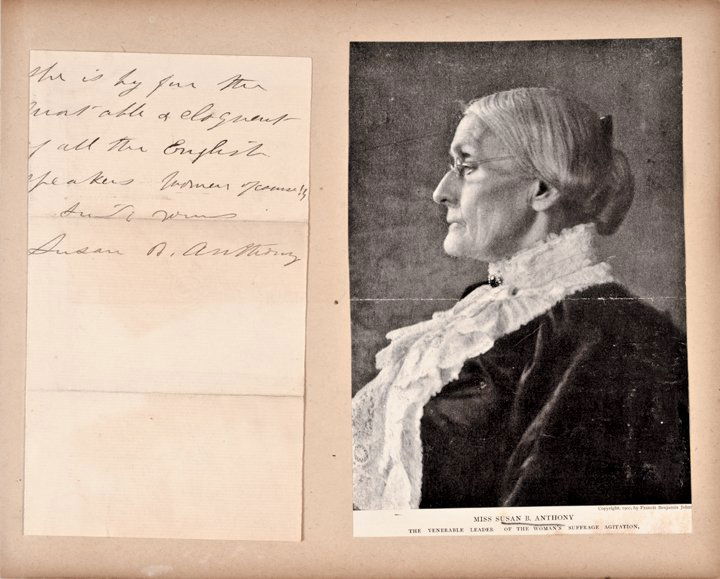 She is by far the
most able & eloquent
of all the English
speakers women of course!!
yours
Susan B. Anthony
Copyright, by Francis Benjamin Johns
MISS SUSAN B. ANTHONY
THE VENERABLE LEADER OF THE WOMAN'S SUFFRAGE AGITATION,